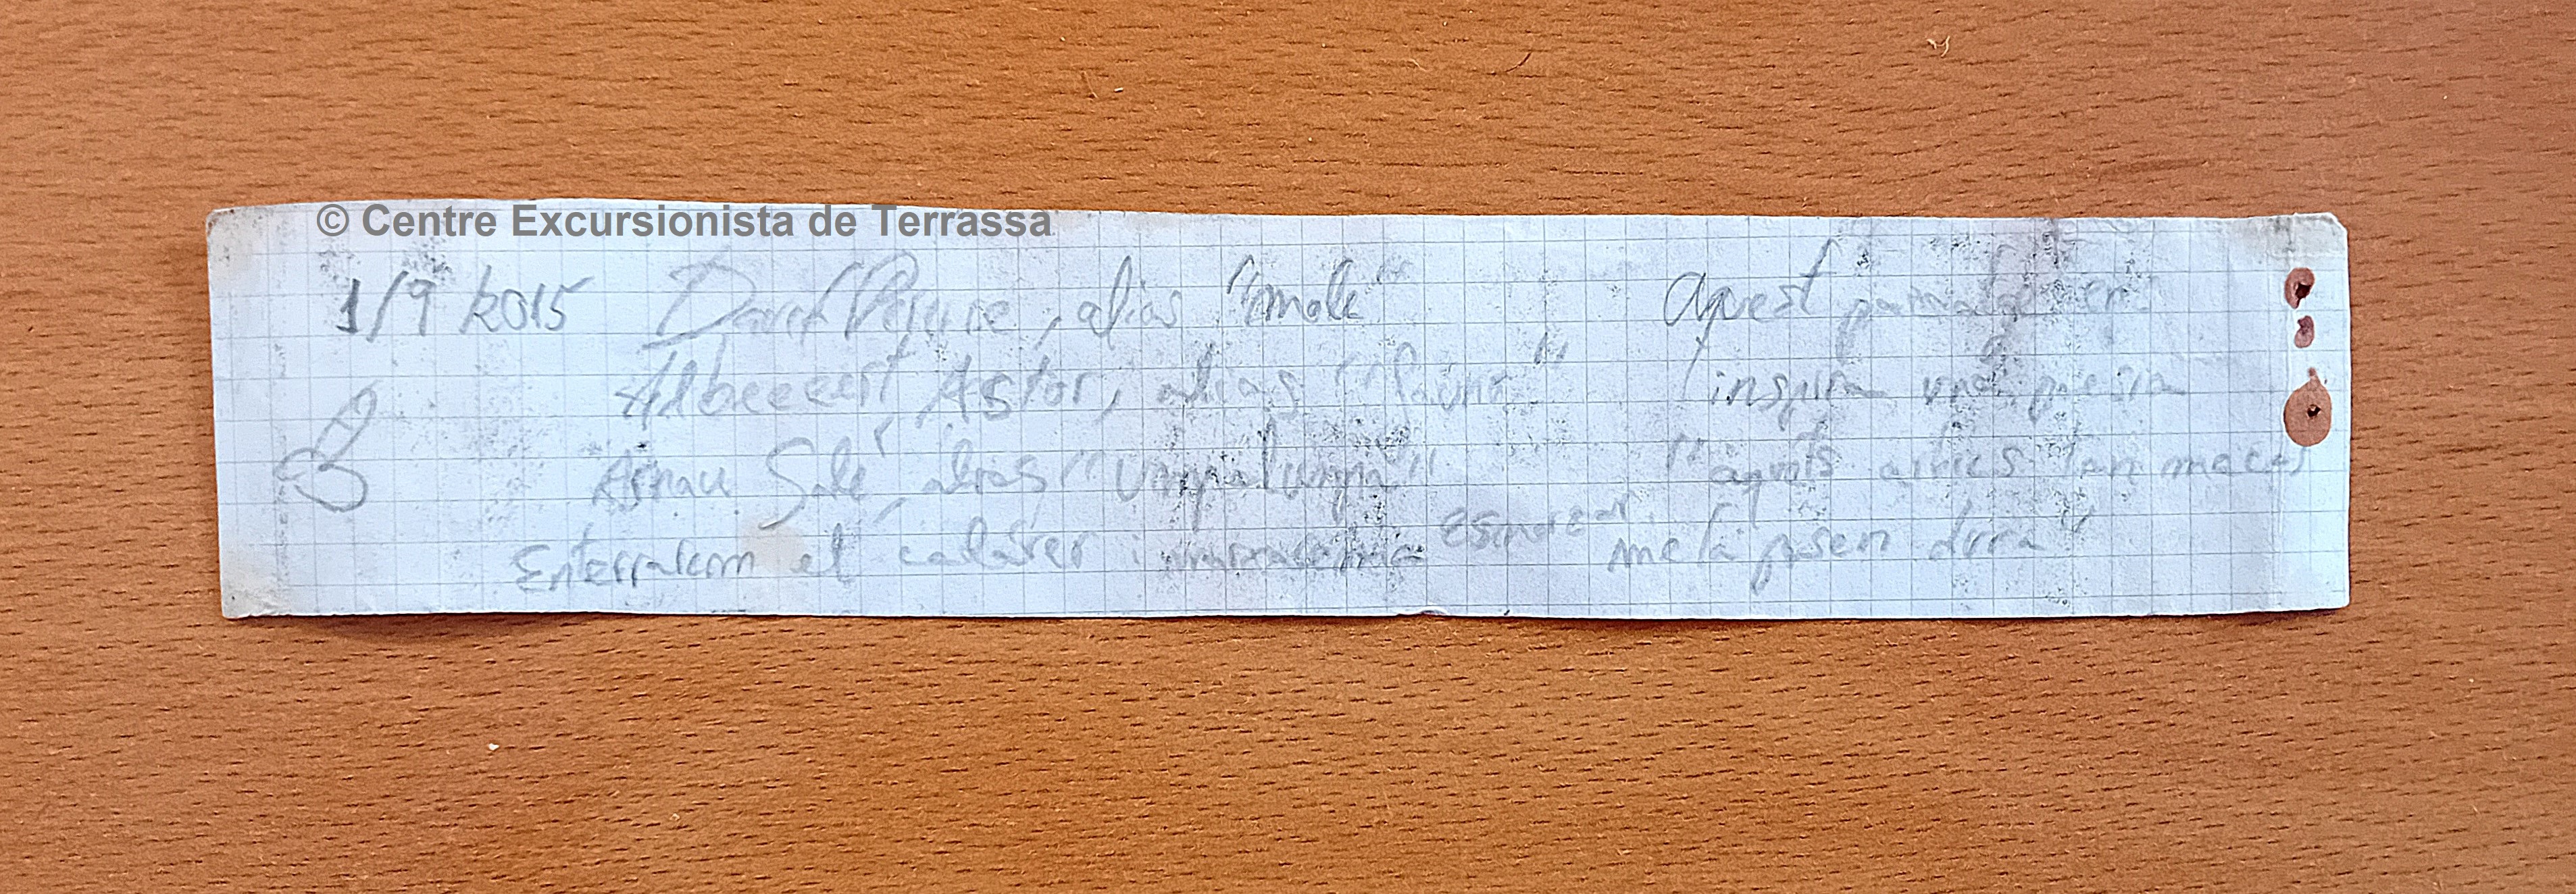 © Centre Excursionista de Terrassa
1/9/2015 David , alias "mole"
Albeeeert Astor, alias "
Arnau Solé, alias "Umpalumpa"
Enterrarem el cadàver i esmorzar
Aquest en
inspira una poesia
" arbres tan macos
me la posen dura"